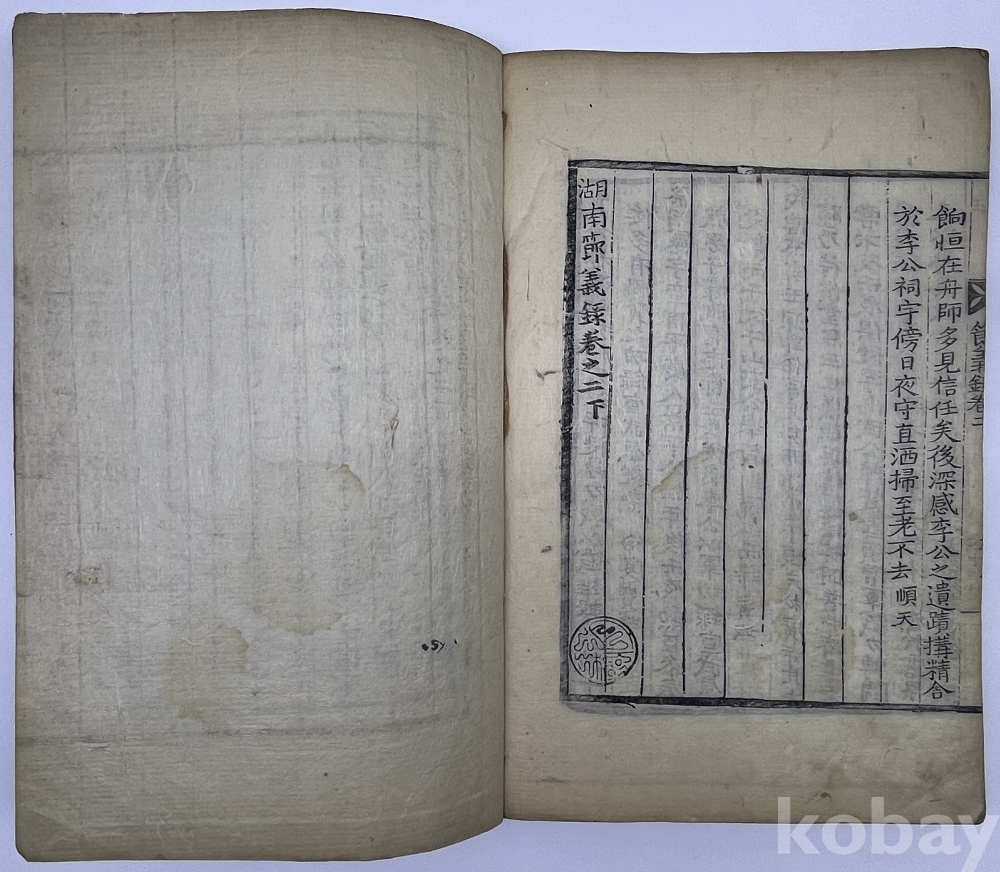 餉恒在舟師多見信任矣後深感李公之遺蹟搆精舍
於李公祠宇傍日夜守直洒掃至老不去順天
湖南節義錄卷之二下
節義錄卷二
kobay